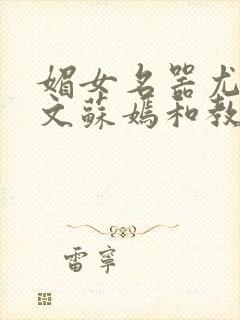 媚女名器尤
文蘇媽和教
雷寧